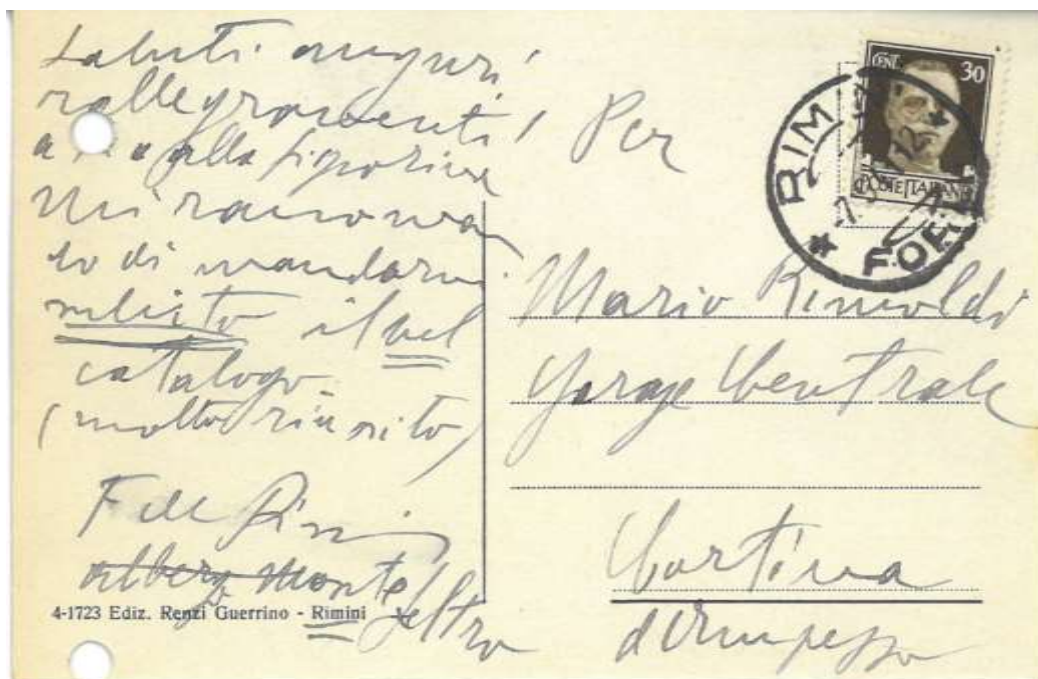 Saluti auguri
rallegramenti!
a alla signorina
Mi raccoman
do di mandarmi
subito il bel
catalogo.
(molto riuscito)
F de Pisis
albergo Monte
feltro
4-1723 Ediz. Renzi Guerrino - Rimini
Per
Mario Rimoldi
Garage Centrale
Cortina
d'Ampezzo
CENT. 30
POSTE ITALIANE
RIMINI